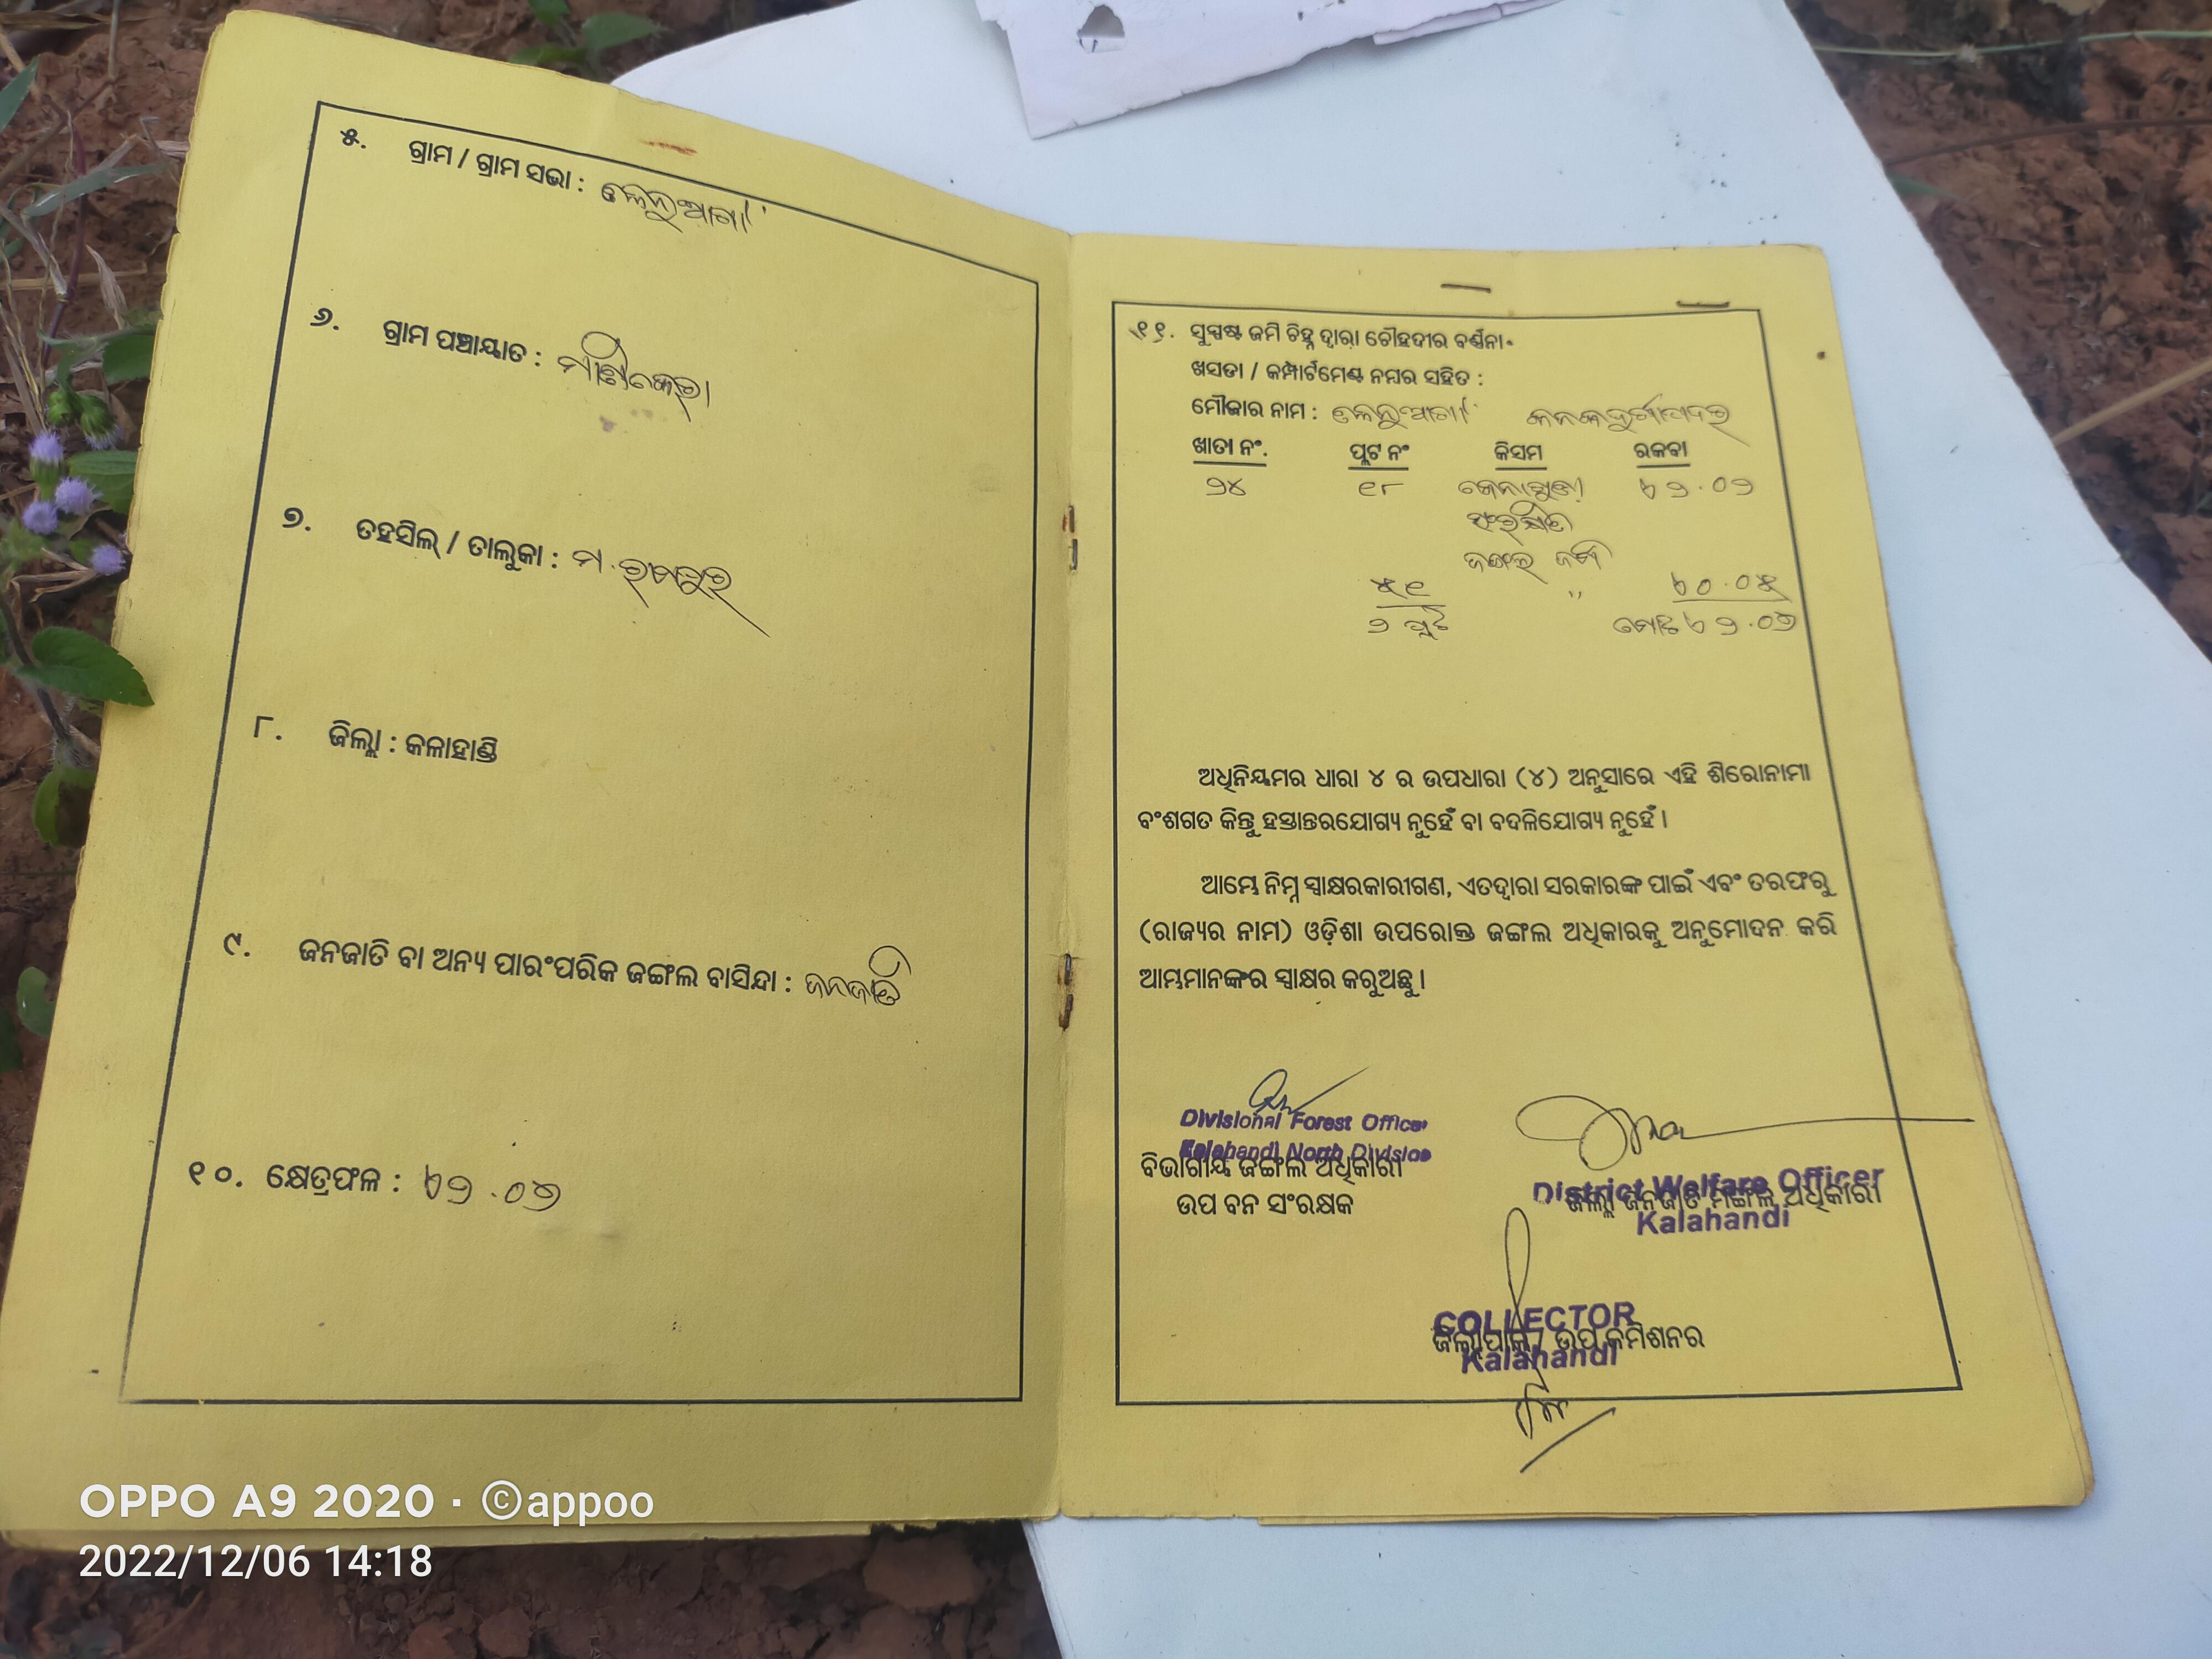 ୫. ଗ୍ରାମ / ଗ୍ରାମ ସଭା :
୬. ଗ୍ରାମ ପଞ୍ଚାୟାତ :
୭. ତହସିଲ୍ / ତାଲୁକା : ମ. ରାମପୁର
୮. ଜିଲ୍ଲା : କଳାହାଣ୍ଡି
୯. ଜନଜାତି ବା ଅନ୍ୟ ପାରଂପରିକ ଜଙ୍ଗଲ ବାସିନ୍ଦା : ଜନଜାତି
୧୦. କ୍ଷେତ୍ରଫଳ :
୧୧. ସୁସ୍ପଷ୍ଟ ଜମି ଚିହ୍ନ ଦ୍ୱାରା ଚୌହଦୀର ବର୍ଣ୍ଣନା
ଖସଡା / କମ୍ପାର୍ଟମେଣ୍ଟ ନମ୍ବର ସହିତ :
ମୌଜାର ନାମ :
ଖାତା ନଂ. ପ୍ଲଟ ନଂ କିସମ ରକବା
୨୪ ୧୮
ସଂରକ୍ଷିତ
ଜଙ୍ଗଲ ଜମି
୫୧ "
୨ ପ୍ଲଟ
ଅଧିନିୟମର ଧାରା ୪ ର ଉପଧାରା (୪) ଅନୁସାରେ ଏହି ଶିରୋନାମା
ବଂଶଗତ କିନ୍ତୁ ହସ୍ତାନ୍ତରଯୋଗ୍ୟ ନୁହେଁ ବା ବଦଳିଯୋଗ୍ୟ ନୁହେଁ ।
ଆମ୍ଭେ ନିମ୍ନ ସ୍ୱାକ୍ଷରକାରୀଗଣ, ଏତଦ୍ୱାରା ସରକାରଙ୍କ ପାଇଁ ଏବଂ ତରଫରୁ
(ରାଜ୍ୟର ନାମ) ଓଡ଼ିଶା ଉପରୋକ୍ତ ଜଙ୍ଗଲ ଅଧିକାରକୁ ଅନୁମୋଦନ କରି
ଆମ୍ଭମାନଙ୍କର ସ୍ୱାକ୍ଷର କରୁଅଛୁ ।
Divisional Forest Officer
Kalahandi North Division
ବିଭାଗୀୟ ଜଙ୍ଗଲ ଅଧିକାରୀ
ଉପ ବନ ସଂରକ୍ଷକ
District Welfare Officer
ଜିଲ୍ଲା ଜନଜାତି ମଙ୍ଗଳ ଅଧିକାରୀ
Kalahandi
COLLECTOR
ଜିଲ୍ଲାପାଳ / ଉପ କମିଶନର
Kalahandi
OPPO A9 2020 · ©appoo
2022/12/06 14:18